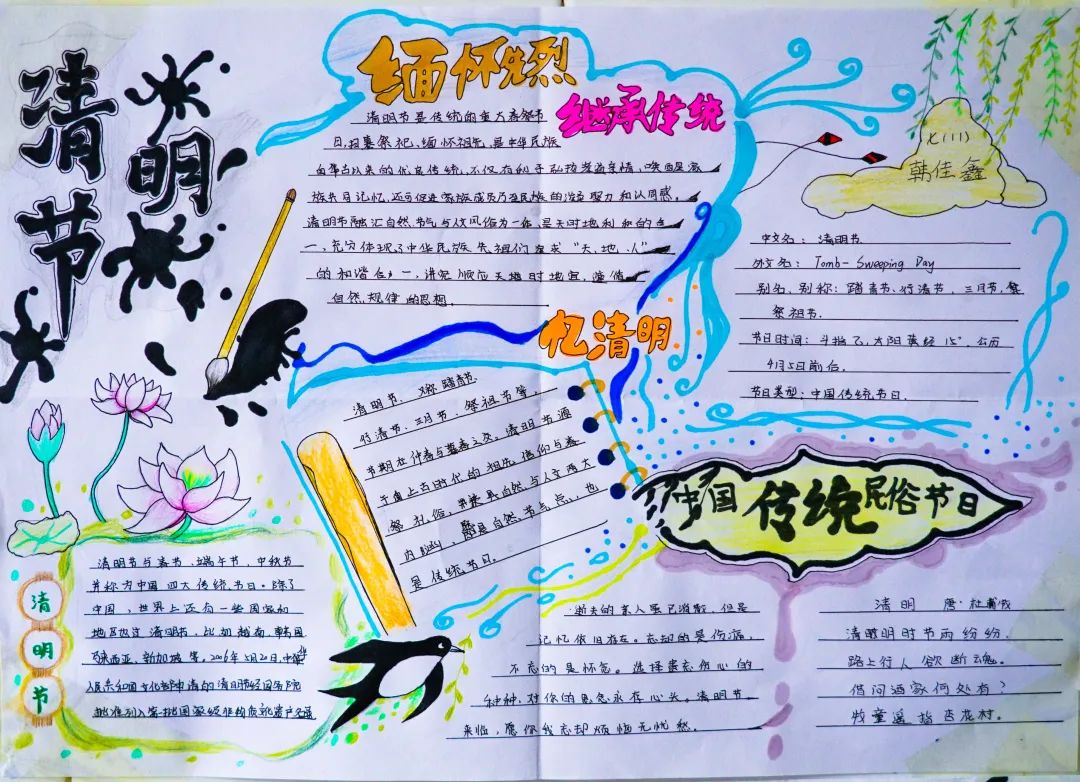 清明节
缅怀先烈
继承传统
清明节是传统的重大春祭节
日,扫墓祭祀、缅怀祖先,是中华民族
自古以来的优良传统,不仅有利于弘扬孝道亲情、唤醒家
族共同记忆,还可促进家族成员乃至民族的凝聚力和认同感。
清明节融汇自然节气与人文风俗为一体,是天时地利人和的合
一,充分体现了中华民族先祖们追求“天、地、人”
的和谐合一,讲究顺应天时地宜、遵循
自然规律的思想。
七(11)
韩佳鑫
中文名:清明节
外文名:Tomb-Sweeping Day
别名、别称:踏青节、行清节、三月节、祭
祭祖节.
节日时间:斗指乙,太阳黄经15°,公历
4月5日前后.
节日类型:中国传统节日.
忆清明
清明节,又称踏青节
行清节、三月节、祭祖节等,
节期在仲春与暮春之交。清明节源
于上古时代的祖先信仰与春
祭礼俗,兼具自然与人文两大
内涵,既是自然节气点,也
是传统节日.
中国传统民俗节日
清明节
清明节与春节、端午节、中秋节
并称为中国四大传统节日。除了
中国,世界上还有一些国家和
地区也过清明节,比如越南、韩国
马来西亚、新加坡等。2006年5月20日,中华
人民共和国文化部申请的清明节经国务院
批准列入第一批国家级非物质文化遗产名录
逝去的亲人虽已消散,但是
记忆依旧存在。忘却的是伤痛,
不忘的是怀念。选择遗忘伤心的
种种,对你的思念永存心头。清明节
来临,愿你我忘却烦恼无忧愁。
清明 唐·杜牧
清明时节雨纷纷,
路上行人欲断魂。
借问酒家何处有?
牧童遥指杏花村。